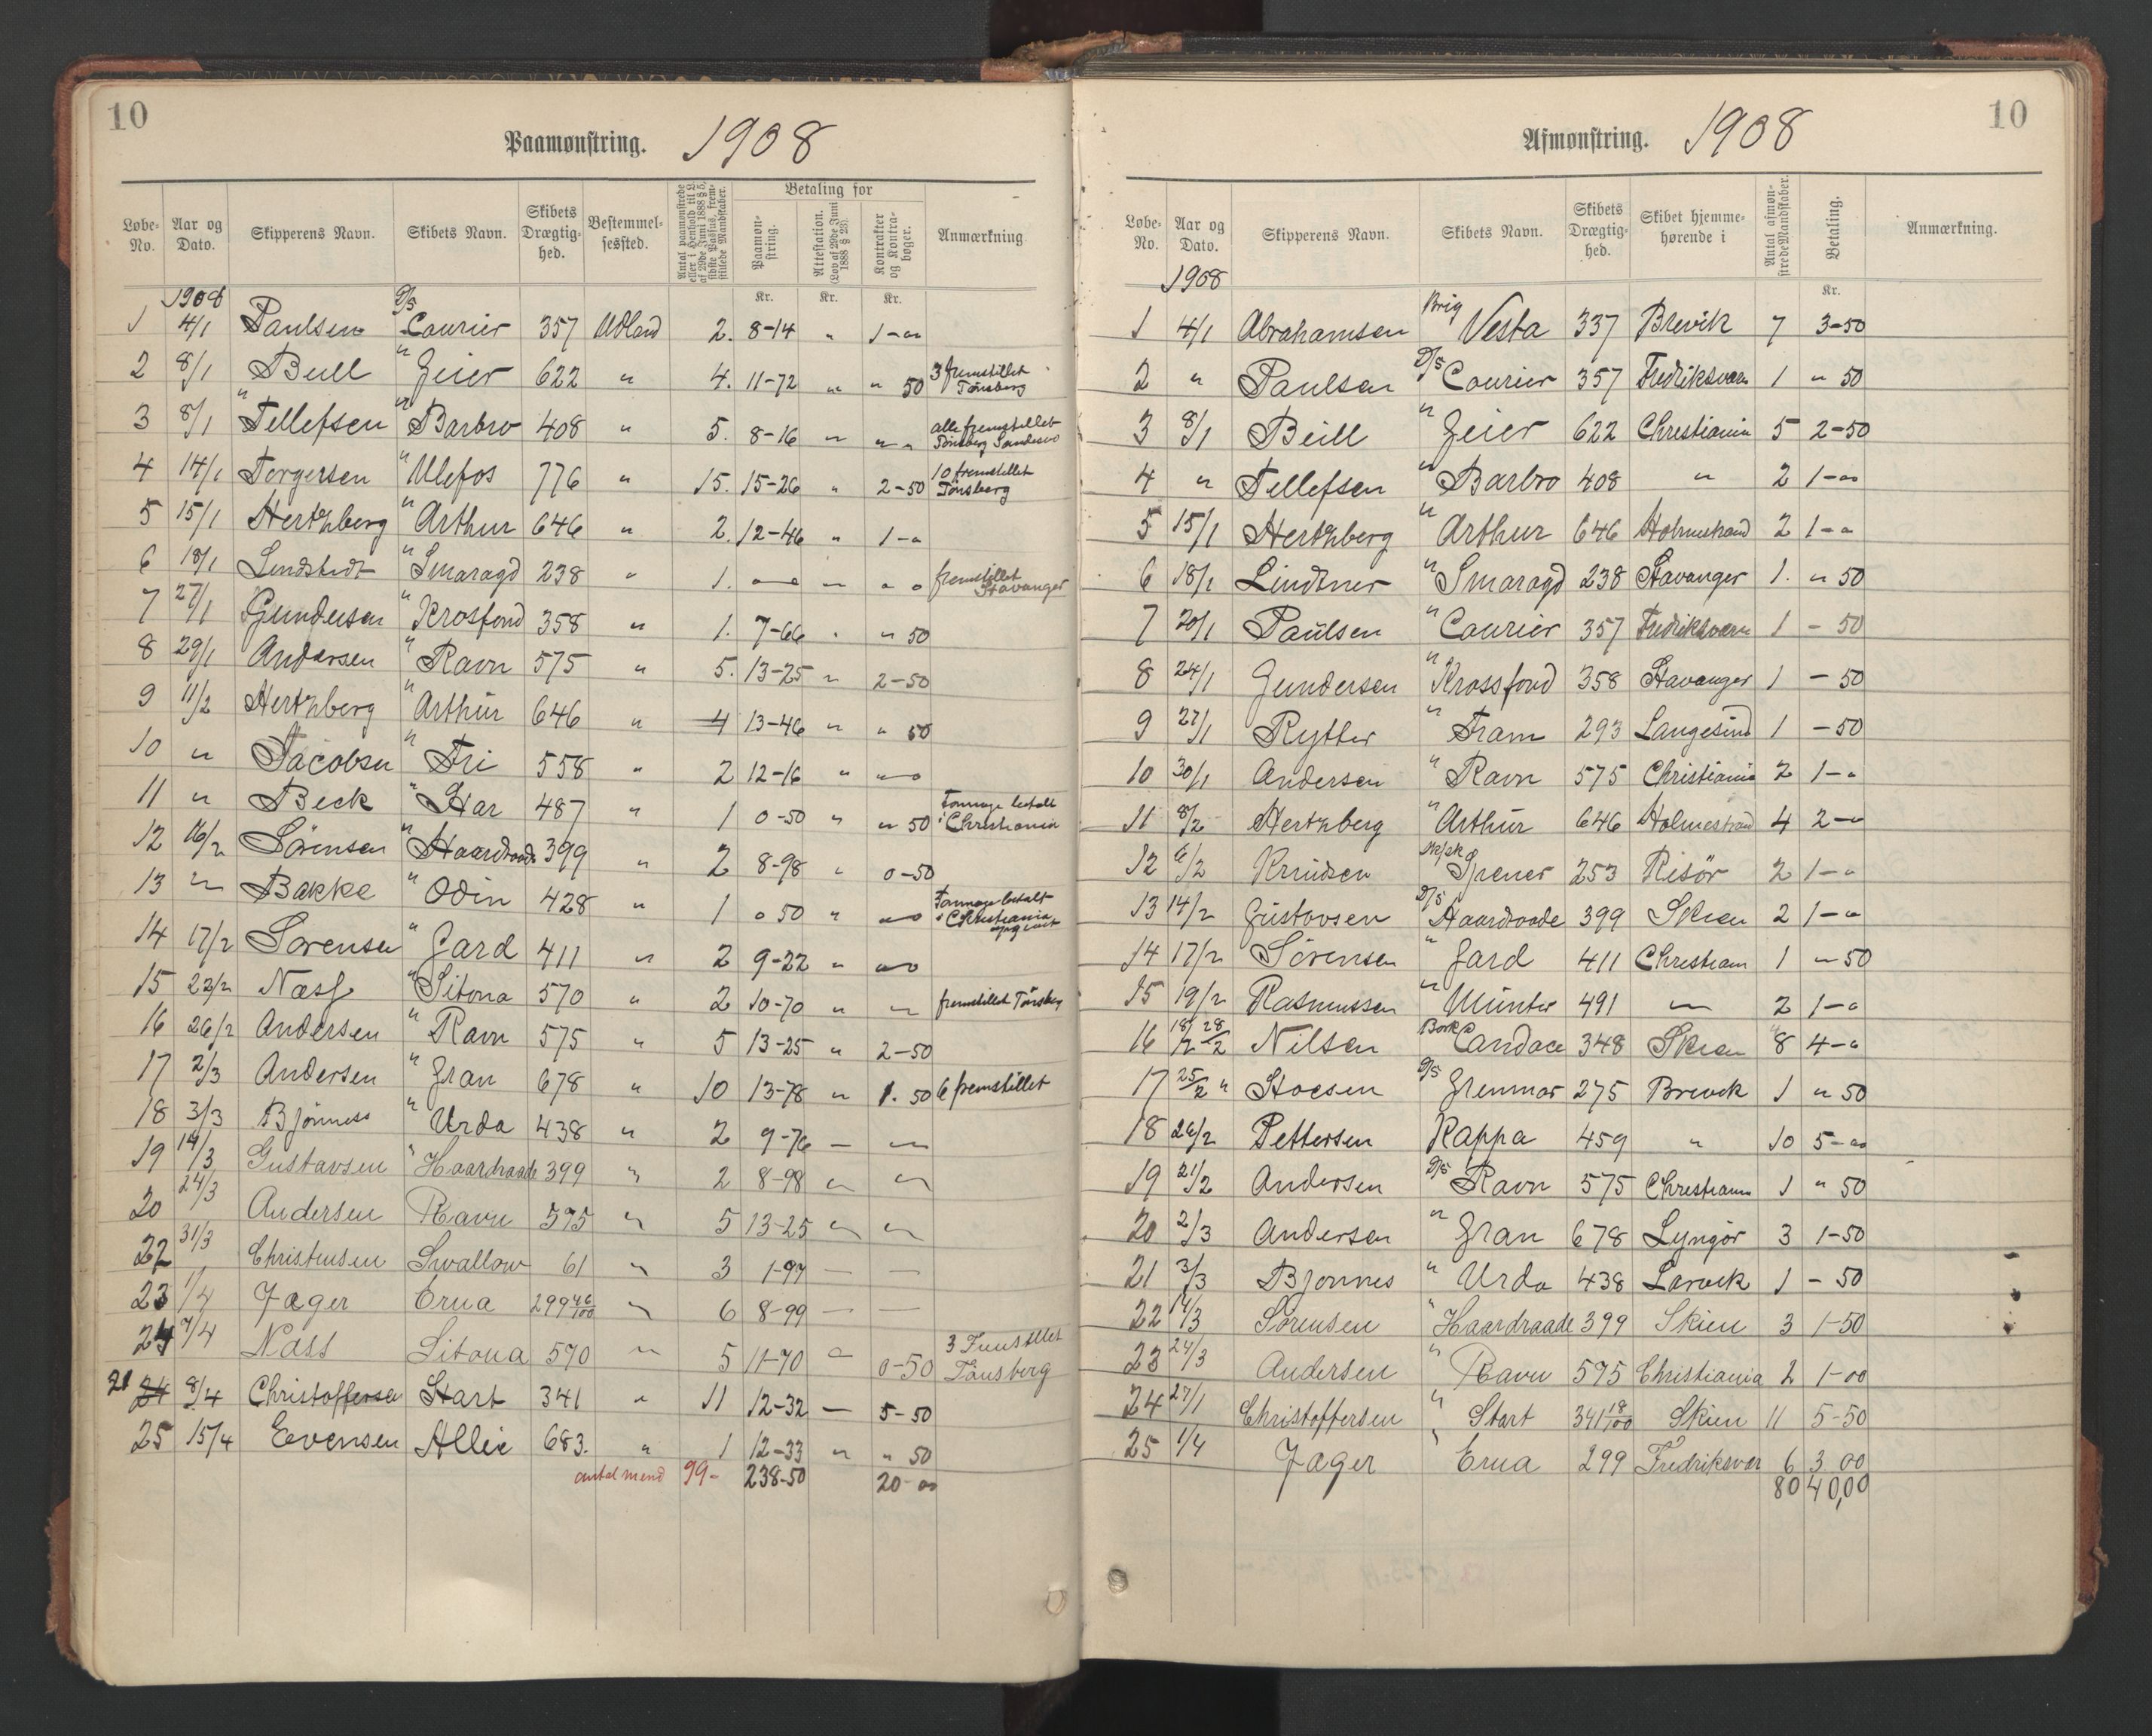 10
Paamønstring. 1908
Løbe-No. Aar og Dato. Skipperens Navn. Skibets Navn. Skibets Drægtighed. Bestemmelsessted. Antal paamønstrede eller i Henhold til L. af 29de Juni 1888 § 5, sidste Passus, fremstillede Mandskaber. Betaling for Paamønstring. Attestation. (Lov af 29de Juni 1888 § 23). Kontrakter og Kontrabøger. Anmærkning
1908 Kr. Kr. Kr.
1 4/1 Paulsen D/S Courier 357 Udland 2. 8-14 " 1-00
2 8/1 Bull " Geier 622 " 4. 11-72 " " 50 3 fremstillet Tönsberg
3 8/1 Tellefsen " Barbro 408 " 5. 8-16 " " " alle fremstillet Tönsberg
4 14/1 Torgersen " Ulefos 776 " 15. 15-26 " 2-50 10 fremstillet Tönsberg
5 15/1 Hertzberg " Arthur 646 " 2. 12-46 " 1-"
6 18/1 Lindstedt " Smaragd 238 " 1. " " " fremstillet Stavanger
7 27/1 Gundersen " Krosfond 358 " 1. 7-66 " " 50
8 29/1 Andersen " Ravn 575 " 5. 13-25 " 2-50
9 11/2 Hertzberg " Arthur 646 " 4 13-46 " " 50
10 " Jacobsen " Fri 558 " 2 12-16 " "
11 " Beck " Star 487 " 1 0-50 " " 50 Tonnage betalt i Christiania
12 16/2 Sörensen " Haardraade 399 " 2 8-98 " 0-50
13 " Bakke " Odin 428 " 1 0 50 " " Tonnage betalt i Christiania
14 17/2 Sorensen " Gard 411 " 2 9-22 " "
15 22/2 Næss " Sitona 570 " 2 10-70 " " fremstillet Tönsberg
16 26/2 Andersen " Ravn 575 " 5 13-25 " 2-50
17 2/3 Andersen " Gran 678 " 10 13-78 " 1. 50 6 fremstillet
18 3/3 Bjönness " Urda 438 " 2 9-76 — "
19 14/3 Gustavsen " Haardraade 399 " 2 8-98 " "
20 24/3 Andersen Ravn 575 " 5 13-25 " "
22 31/3 Christensen Swallow 61 " 3 1-97 — —
23 1/4 Jager Erna 299 46/100 " 6 8-99 — —
24 7/4 Nass Sitona 570 " 5 11-70 " 0-50 3 Fremstillet Tönsberg
21 24 8/4 Christoffersen Start 341 " 11 12-32 — 5-50
25 15/4 Evensen Allie 683. " 1 12-33 " " 50
antal mend 99- 238-50 20-00
10
Afmønstring. 1908
Løbe-No. Aar og Dato. Skipperens Navn. Skibets Navn. Skibets Drægtighed. Skibet hjemmehørende i Antal afmønstrede Mandskaber. Betaling. Anmærkning.
1908 Kr.
1 4/1 Abrahamsen Brig Vesta 337 Brevik 7 3-50
2 " Paulsen D/S Courier 357 Fredriksværn 1 " 50
3 8/1 Bull " Geier 622 Christiania 5 2-50
4 " Tellefsen " Barbro 408 " 2 1-00
5 15/1 Hertzberg " Arthur 646 Holmestrand 2 1-"
6 18/1 Lindtner " Smaragd 238 Stavanger 1. " 50
7 20/1 Paulsen " Courier 357 Fredriksværn 1 - 50
8 24/1 Gundersen " Krossfond 358 Stavanger 1 - 50
9 27/1 Rytter " Fram 293 Langesund 1 - 50
10 30/1 Andersen " Ravn 575 Christiania 2 1-"
11 8/2 Hertzberg " Arthur 646 Holmestrand 4 2-"
12 6/2 Knudsen Sk/sk Spener 253 Risör 2 1-"
13 14/2 Gustavsen D/S Haardraade 399 Skien 2 1-"
14 17/2 Sörensen " Gard 411 Christiania 1 " 50
15 19/2 Rasmussen " Munter 491 " 2 1-"
16 18/2 28/2 Nilsen Bark Candace 348 Skien 8 4-"
17 25/2 " Stoesen D/S Grenmar 275 Brevik 1 " 50
18 26/2 Pettersen Kappa 459 " 10 5-00
19 21/2 Andersen D/S Ravn 575 Christiania 1 " 50
20 2/3 Andersen " Gran 678 Lyngör 3 1-50
21 3/3 Bjonnes " Urda 438 Larvik 1 - 50
22 14/3 Sorensen " Haardraade 399 Skien 3 1-50
23 24/3 Andersen " Ravn 575 Christiania 2 1-00
24 27/1 Christoffersen " Start 341 18/100 Skien 11 5-50
25 1/4 Jager " Erna 299 Fredriksvær 6 3 00
80 40,00